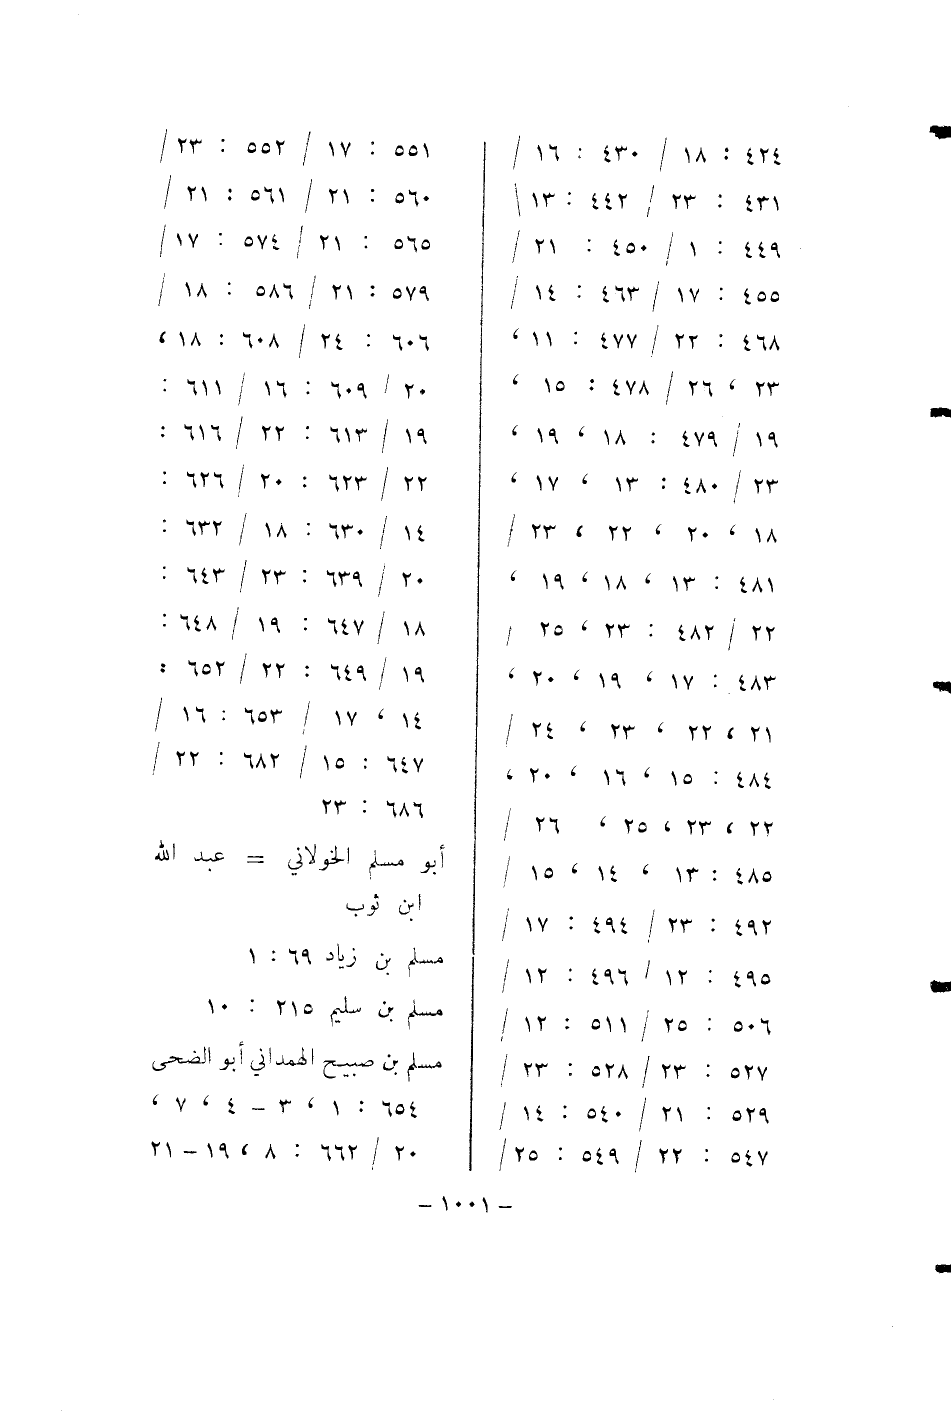 ٤٢٤ : ١٨ / ٤٣٠ : ١٦ /
٤٣١ : ٢٣ / ٤٤٢ : ١٣ \
٤٤٩ : ١ / ٤٥٠ : ٢١ /
٤٥٥ : ١٧ / ٤٦٣ : ١٤ /
٤٦٨ : ٢٢ / ٤٧٧ : ١١ ،
٢٣ ، ٢٦ / ٤٧٨ : ١٥ ،
١٩ / ٤٧٩ : ١٨ ، ١٩ ،
٢٣ / ٤٨٠ : ١٣ ، ١٧ ،
١٨ ، ٢٠ ، ٢٢ ، ٢٣ /
٤٨١ : ١٣ ، ١٨ ، ١٩ ،
٢٢ / ٤٨٢ : ٢٣ ، ٢٥ /
٤٨٣ : ١٧ ، ١٩ ، ٢٠ ،
٢١ ، ٢٢ ، ٢٣ ، ٢٤ /
٤٨٤ : ١٥ ، ١٦ ، ٢٠ ،
٢٢ ، ٢٣ ، ٢٥ ، ٢٦ /
٤٨٥ : ١٣ ، ١٤ ، ١٥ /
٤٩٢ : ٢٣ / ٤٩٤ : ١٧ /
٤٩٥ : ١٢ / ٤٩٦ : ١٢ /
٥٠٦ : ٢٥ / ٥١١ : ١٢ /
٥٢٧ : ٢٣ / ٥٢٨ : ٢٣ /
٥٢٩ : ٢١ / ٥٤٠ : ١٤ /
٥٤٧ : ٢٢ / ٥٤٩ : ٢٥ /
٥٥١ : ١٧ / ٥٥٢ : ٢٣ /
٥٦٠ : ٢١ / ٥٦١ : ٢١ /
٥٦٥ : ٢١ / ٥٧٤ : ١٧ /
٥٧٩ : ٢١ / ٥٨٦ : ١٨ /
٦٠٦ : ٢٤ / ٦٠٨ : ١٨ ،
٢٠ / ٦٠٩ : ١٦ / ٦١١ :
١٩ / ٦١٣ : ٢٢ / ٦١٦ :
٢٢ / ٦٢٣ : ٢٠ / ٦٢٦ :
١٤ / ٦٣٠ : ١٨ / ٦٣٢ :
٢٠ / ٦٣٩ : ٢٣ / ٦٤٣ :
١٨ / ٦٤٧ : ١٩ / ٦٤٨ :
١٩ / ٦٤٩ : ٢٢ / ٦٥٢ :
١٤ ، ١٧ / ٦٥٣ : ١٦ /
٦٤٧ : ١٥ / ٦٨٢ : ٢٢ /
٦٨٦ : ٢٣
أبو مسلم الخولاني = عبد الله
ابن ثوب
مسلم بن زياد ٦٩ : ١
مسلم بن سليم ٢١٥ : ١٠
مسلم بن صبيح الهمداني أبو الضحى
٦٥٤ : ١ ، ٣ – ٤ ، ٧ ،
٢٠ / ٦٦٢ : ٨ ، ١٩ – ٢١
– ١٠٠١ –